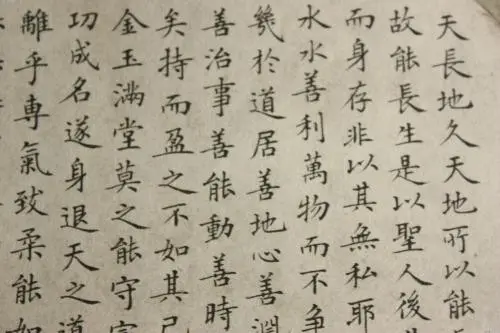 天長地久天地所以能
故能長生是以聖人後
而身存非以其無私耶
水水善利萬物而不争
幾於道居善地心善淵
善治事善能動善時
矣持而盈之不如其已
金玉滿堂莫之能守
功成名遂身退天之道
離乎專氣致柔能如